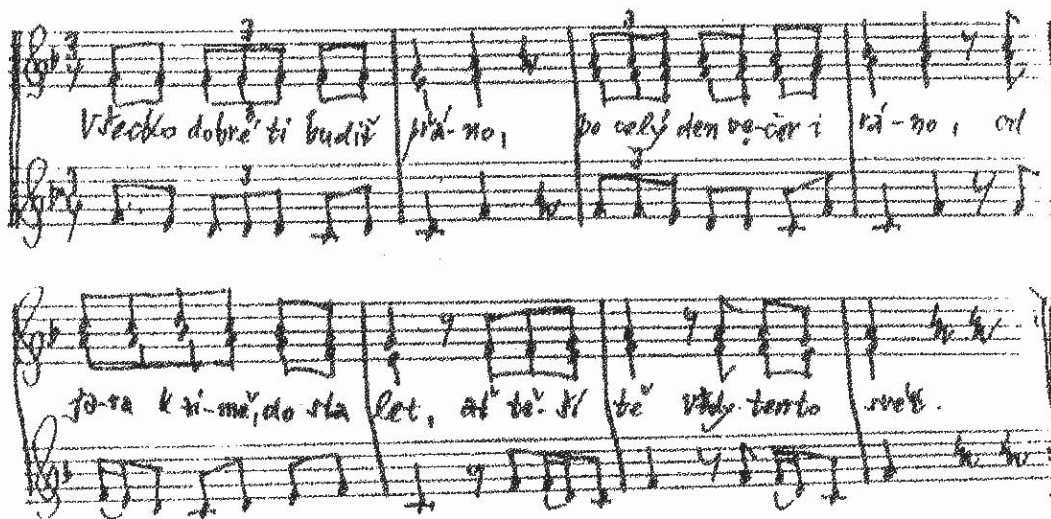 3 3
Všecko dobré ti budiž přá-no, po celý den ve-čer i rá-no, od
3 3
ja-ra k zi-mě, do sta let, ať tě-ší tě vždy tento svět.